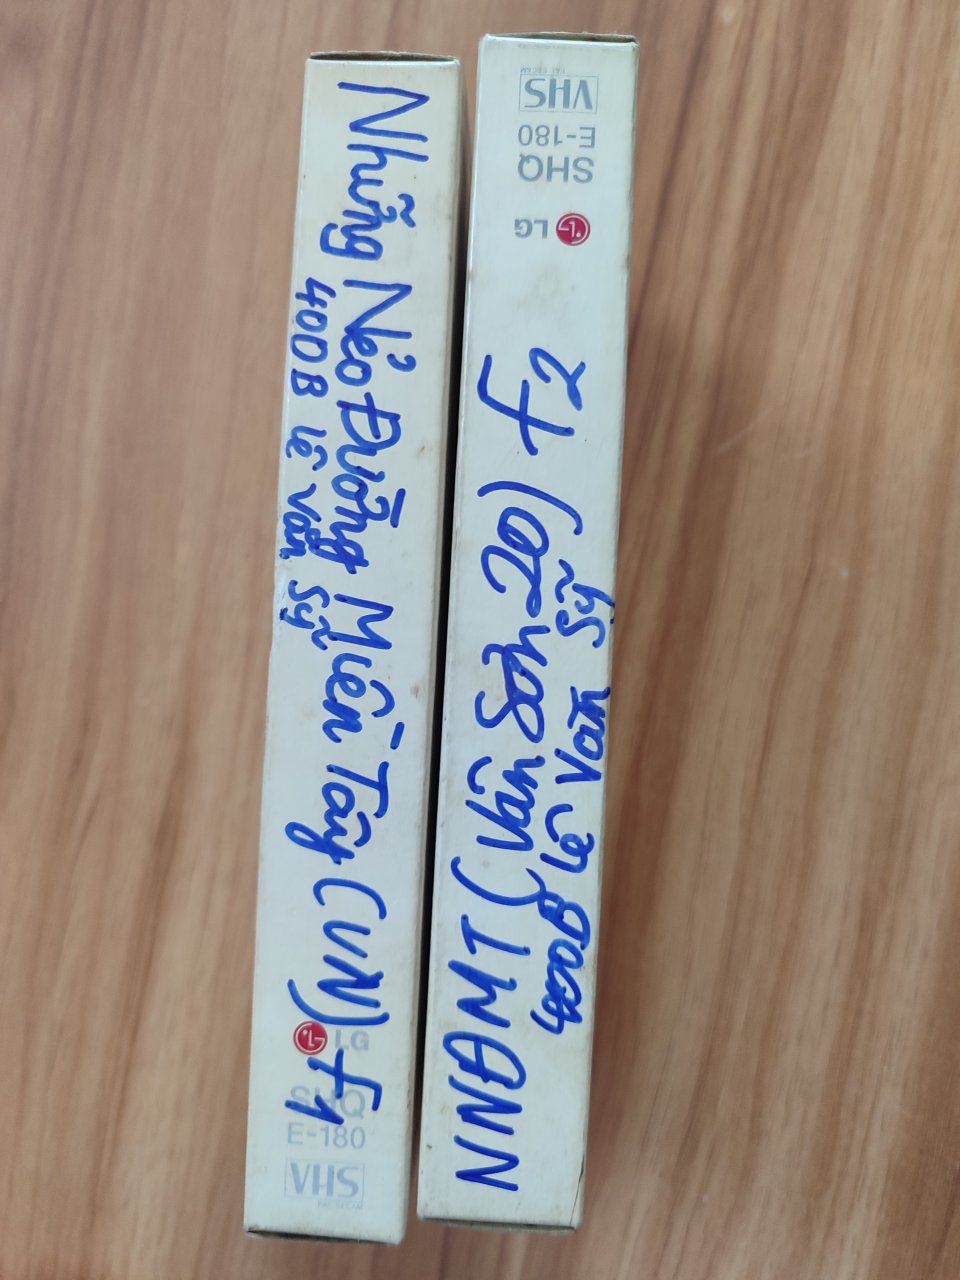 Những Nẻo Đường Miền Tây (VN) f1
400B Lê Văn Sỹ
LG
SHQ
E-180
VHS
PAL SECAM
PAL SECAM
VHS
E-180
SHQ
LG
NNĐMT F2
400B Lê Văn Sỹ